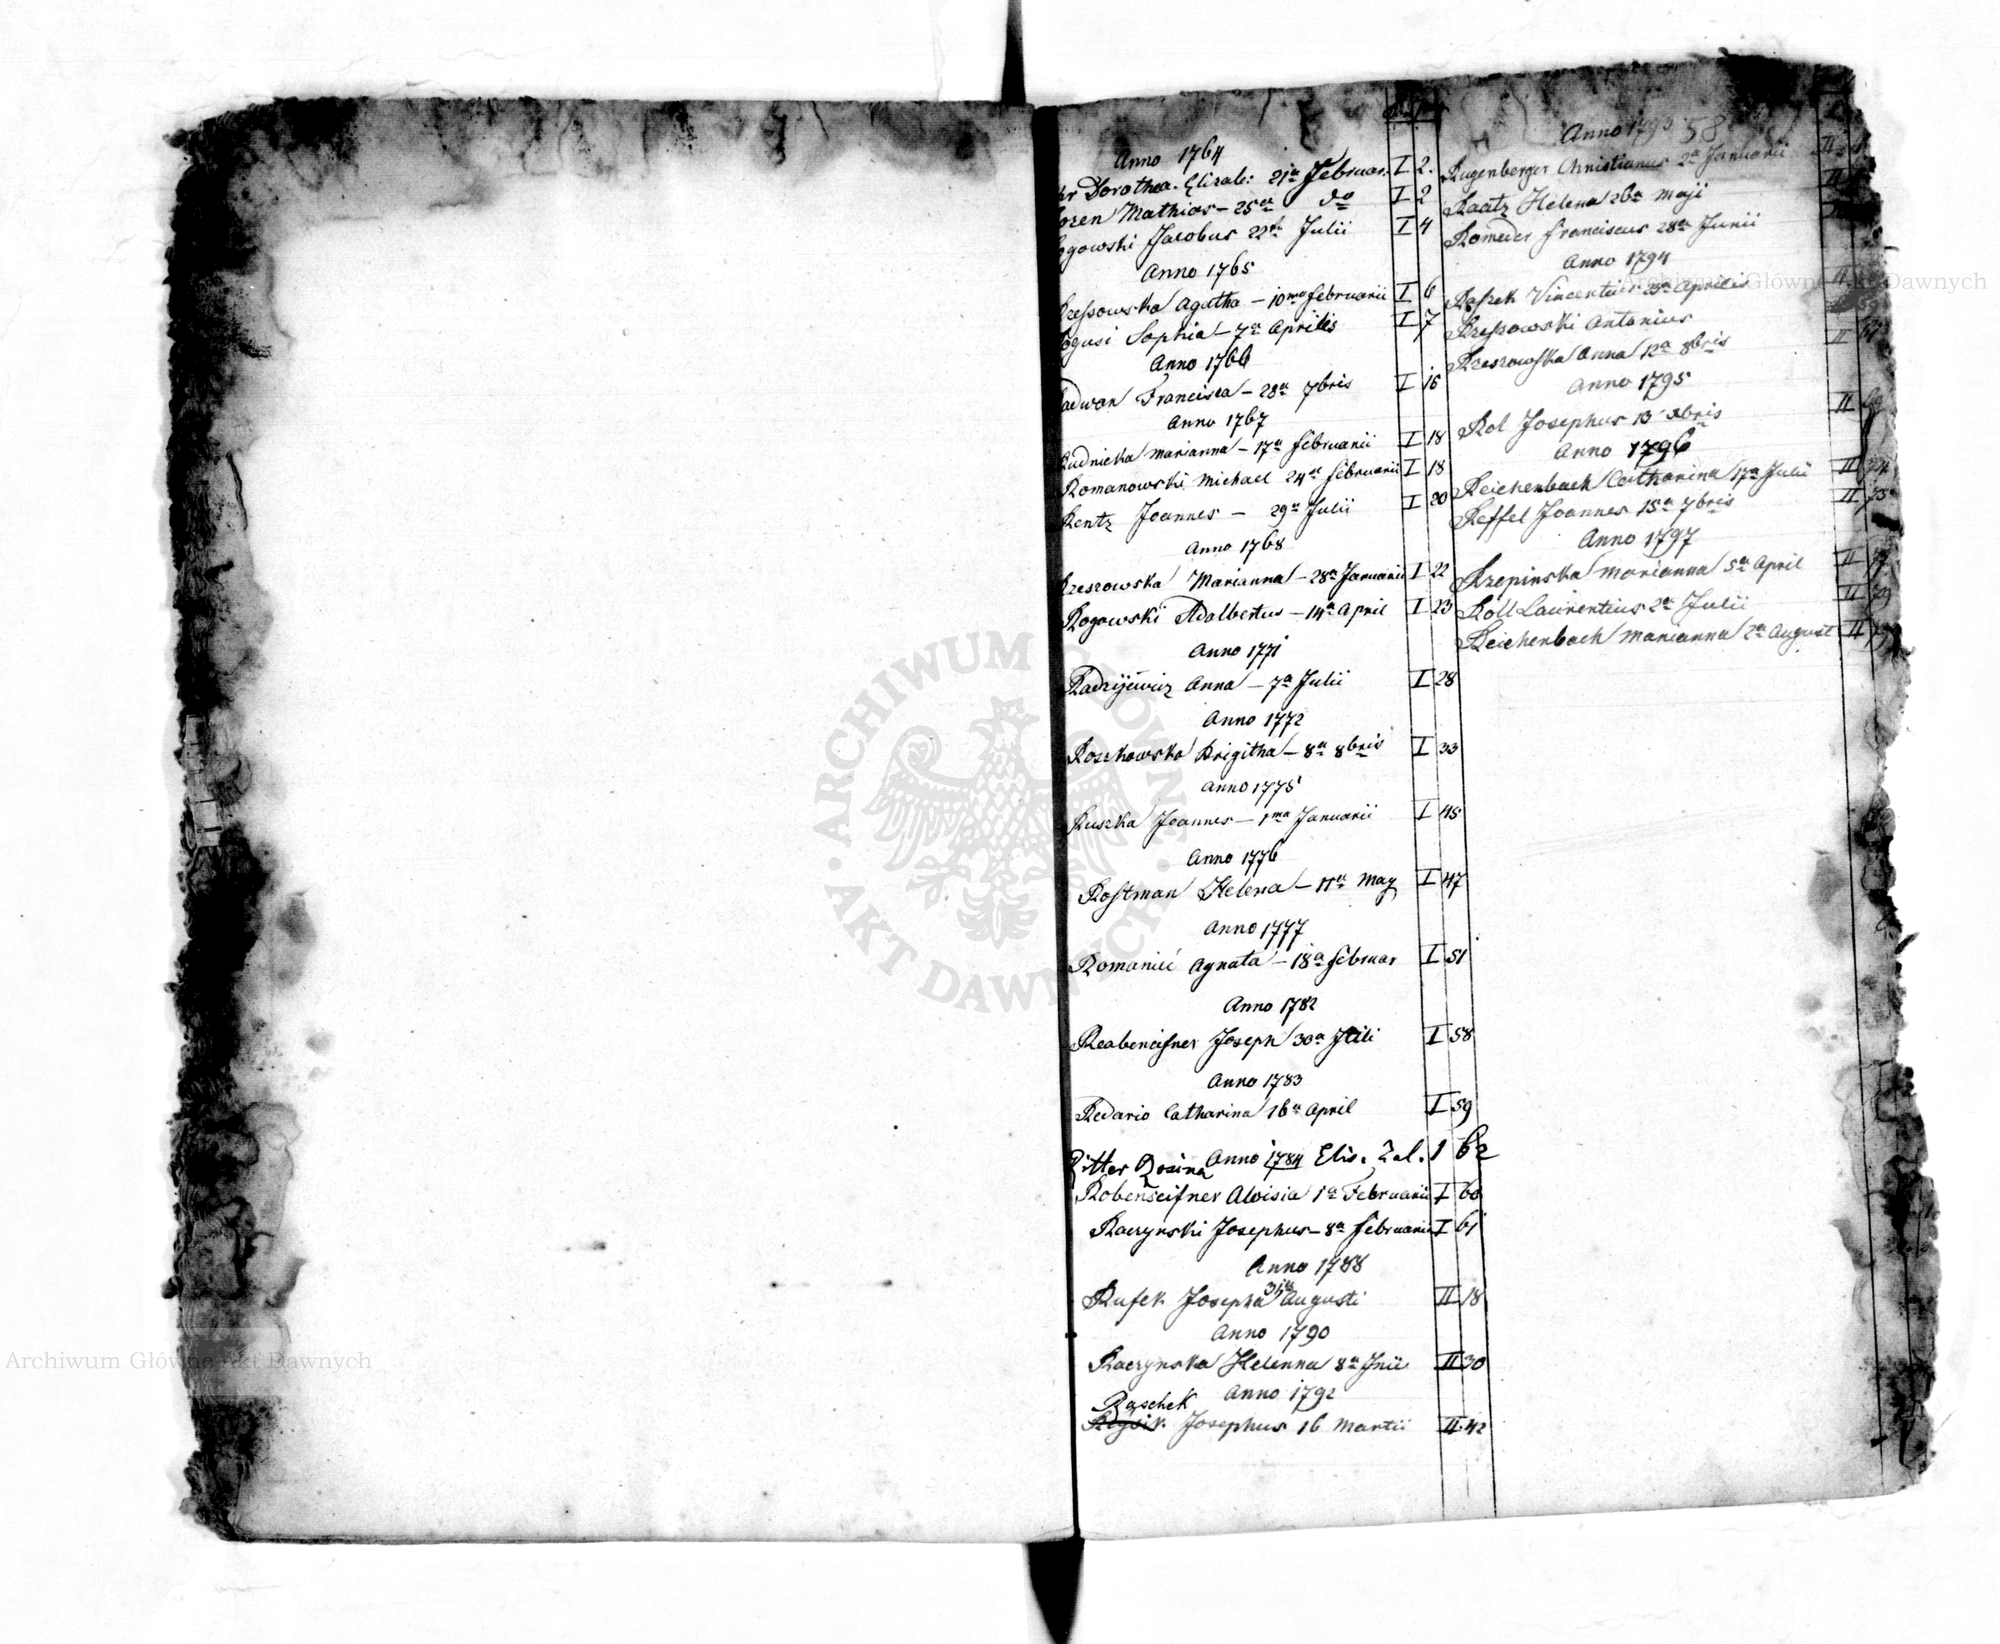 58
Anno 1764
Dorothea. Elizab: 21a Februar. I 2.
Mathias – 25a do I 2
Jacobus 22a Julii I 4
Anno 1765
Agatha – 10ma Februarii I 6
Sophia – 7a Aprilis I 7
Anno 1766
Francisca – 28a 7bris I 16
Anno 1767
Rudnicka Marianna – 17a Februarii I 18
Romanowski Michael 24a Februarii I 18
Rentz Joannes – 29a Julii I 20
Anno 1768
Rzeszowska Marianna – 28a Januarii I 22
Rogowski Adalbertus – 14a April I 23
Anno 1771
Anna – 7a Julii I 28
Anno 1772
Roszkowska Brigitha – 8a 8bris I 33
Anno 1775
Ruszka Joannes – 1ma Januarii I 45
Anno 1776
Rostman Helena – 11a May I 47
Anno 1777
Agnata – 18a Februar I 51
Anno 1782
Joseph 30a I 58
Anno 1783
Redario Catharina 16a April I 59
Anno 1784
Ritter Rosina Elis. Zal. 1 62
Aloisia 1a Februarii I 60
Raczynski Josephus – 8a Februarii I 61
Anno 1788
Rufek Josepha 31a Augusti II 18
Anno 1790
Raczynska Helenna 8a II 30
Anno 1792
Raschek
Josephus 16 Martii II 42
Anno 1793
Rugenberger Christianus 2a Januarii
Raatz Helena 26a Maji
Romeder Franciscus 28a Junii
Anno 1794
Raszek Vincentius Aprilis
Rzeszowski Antonius
Rzeszowska Anna 12a 8bris
Anno 1795
Rol Josephus 13 Xbris II
Anno 1796
Reichenbach Catharina 17a Julii II 74
Reffel Joannes 15a 7bris II 75
Anno 1797
Rzepinska Marianna 5a April II
Röll Laurentius 2a Julii II 79
Reichenbach Marianna 2a August II
Archiwum Główne Akt Dawnych
ARCHIWUM GŁÓWNE · AKT DAWNYCH ·
Archiwum Główne Akt Dawnych